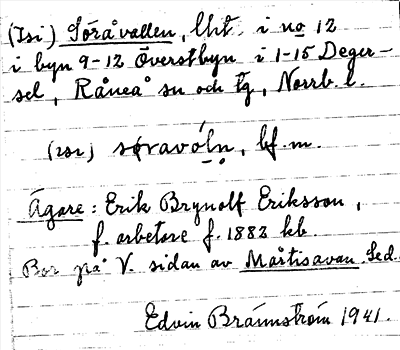 (Isi) Söråvallen, Uht. i no 12
i byn 9-12 Överstbyn i 1-15 Deger-
sel, Råneå sn och tg, Norrb. l.
(ısı) søravóln, bf. m.
Ägare: Erik Brynolf Eriksson,
f. arbetare f. 1882 kb.
Bor på V. sidan av Mårtisavan. Sed.
Edvin Brännström 1941.